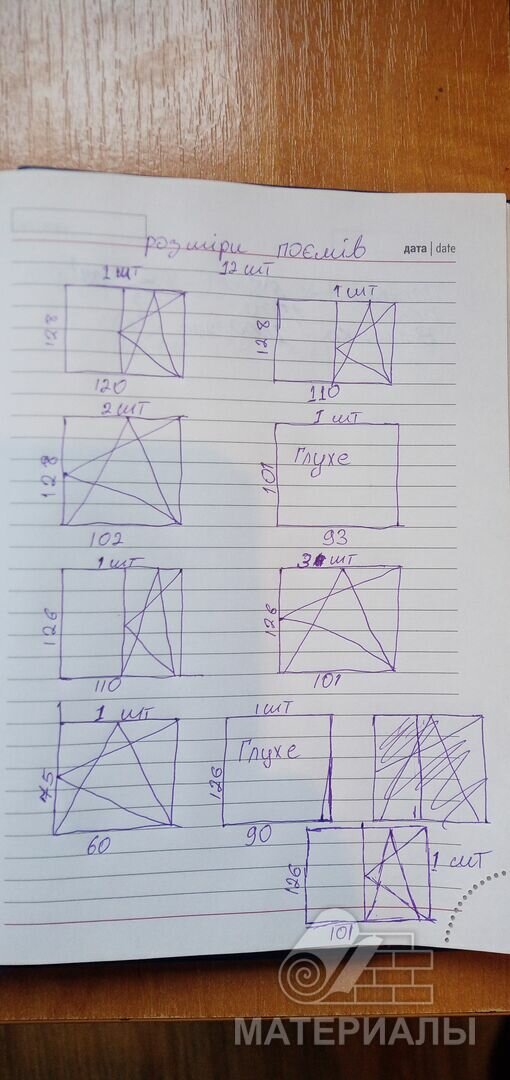 розміри поємів
дата | date
1 шт 12 шт
128
120
1 шт
128
110
2 шт
128
102
1 шт
Глухе
101
93
1 шт
126
110
3 шт
126
101
1 шт
75
60
1 шт
Глухе
126
90
1 шт
126
101
МАТЕРИАЛЫ